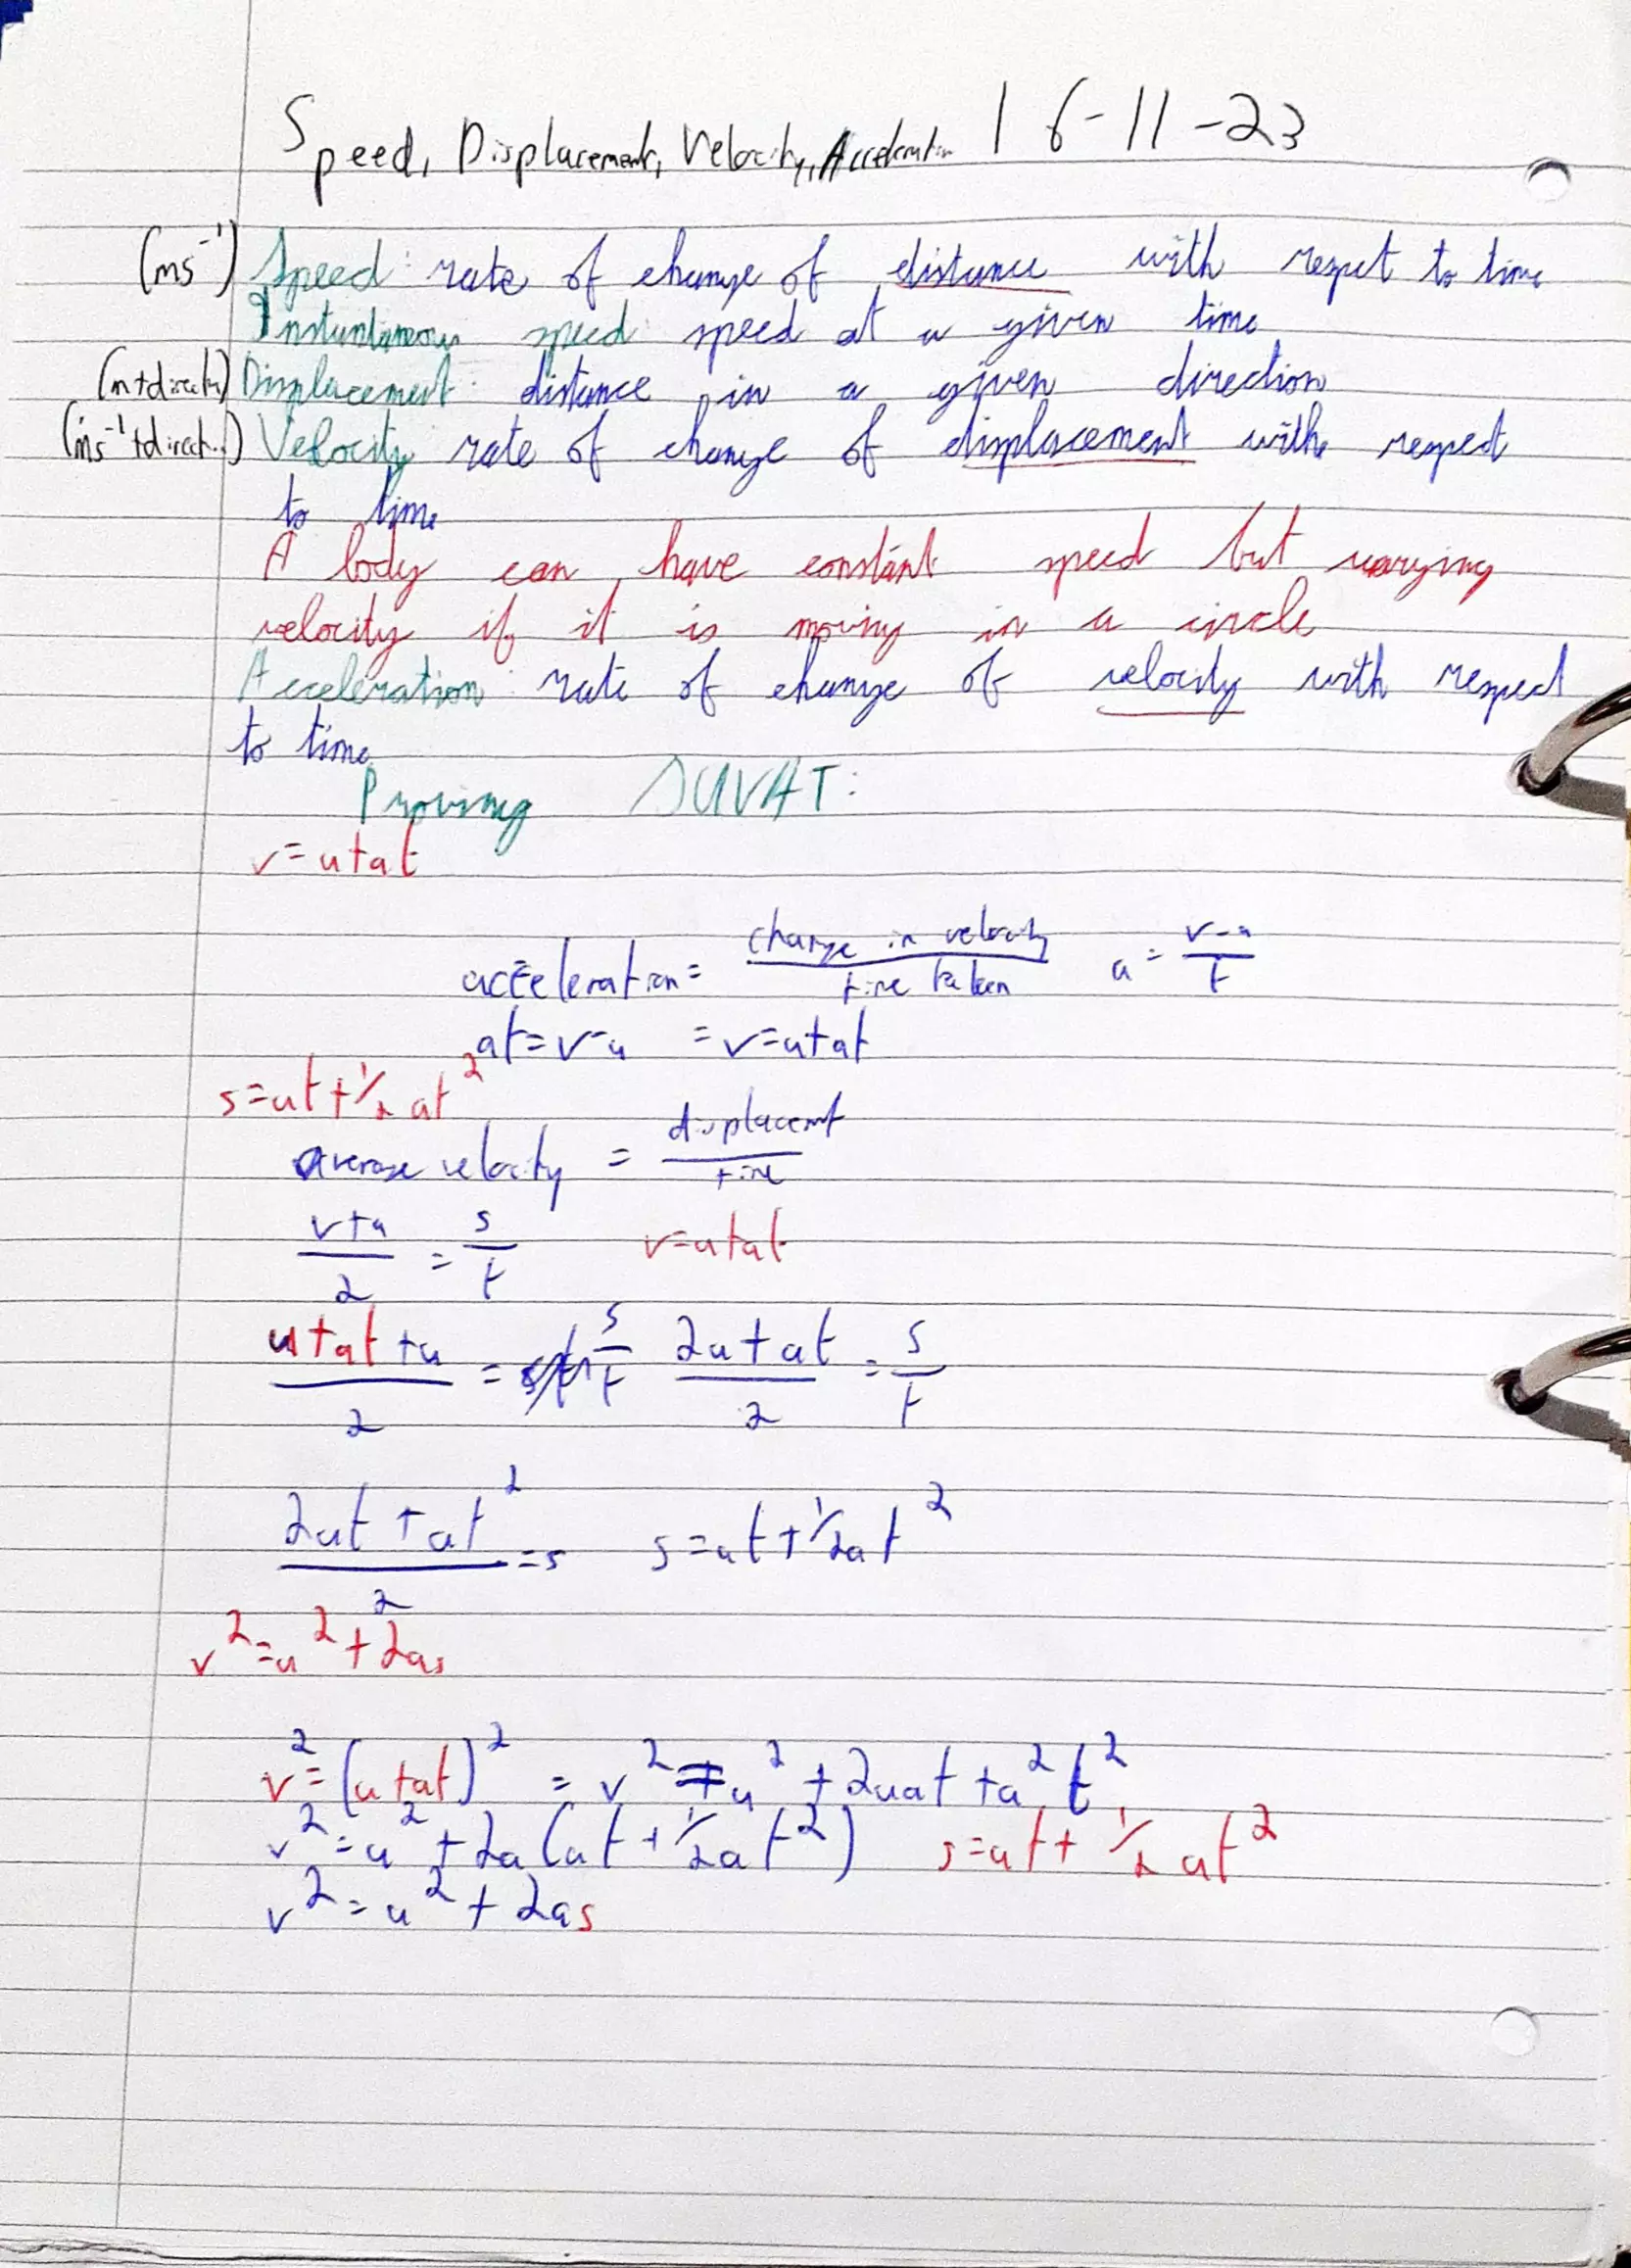 Speed, Displacement, Velocity, Acceleration 16-11-23
(ms⁻¹) Speed: rate of change of distance with respect to time
Instantaneous speed: speed at a given time
(m+direction) Displacement: distance in a given direction
(ms⁻¹+direct..) Velocity rate of change of displacement with respect
to time
A body can have constant speed but varying
velocity if it is moving in a circle
Acceleration: rate of change of velocity with respect
to time
Proving SUVAT:
v=u+at
acceleration= change in velocity / time taken a = v-u / t
at=v-u = v=u+at
s=ut+1/2at²
average velocity = displacement / time
v+u / 2 = s / t v=u+at
u+at+u / 2 = s / t 2u+at / 2 = s / t
2ut+at² / 2 =s s=ut+1/2at²
v²=u²+2as
v²=(u+at)² = v²=u²+2uat+a²t²
v²=u²+2a(ut+1/2at²) s=ut+1/2at²
v²=u²+2as